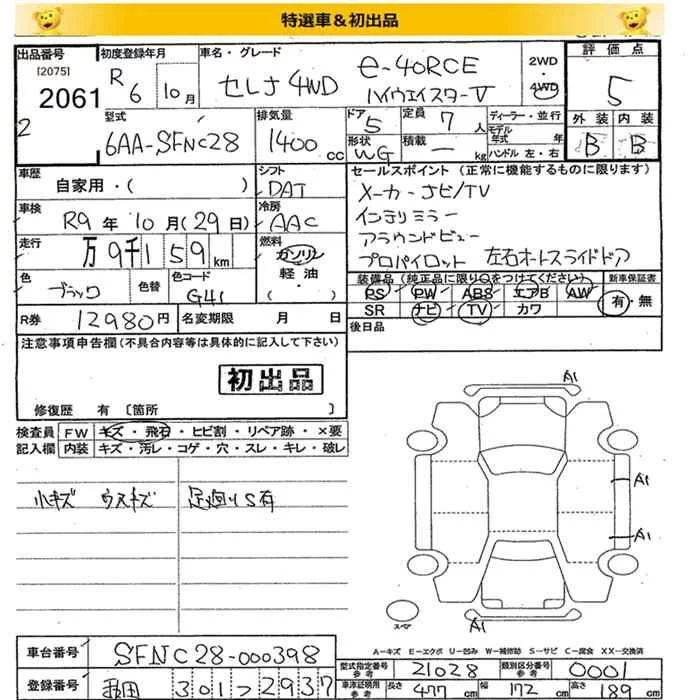 特選車＆初出品
出品番号 初度登録年月 車名・グレード 2WD 評価点
[2075] R 6 10月 セレナ 4WD e-4ORCE ハイウェイスターV 4WD 5
2061
2
型式 排気量 ドア 5 定員 7 人 ディーラー・並行 外装 内装
6AA-SFNC28 1400 cc 形状 WG 積載 ー kg モデル年式 年 B B
ハンドル 左・右
車歴 シフト セールスポイント (正常に機能するものに限ります)
自家用・( ) DAT メーカーナビ/TV
車検 冷房 インテリミラー
R9 年 10 月 (29 日) AAC アラウンドビュー
走行 燃料 プロパイロット 左右オートスライドドア
万 9千159 km ガソリン
軽油
( )
色 色替 色コード 装備品 (純正品に限り○をつけてください) 新車保証書
ブラック G41 PS PW ABS エアB AW 有・無
SR ナビ TV カワ
R券 12980円 名変期限 月 日 後日品
注意事項申告欄(不具合内容等は具体的に記入して下さい)
初出品
修復歴 有 [箇所 ]
検査員 FW キズ・飛石・ヒビ割・リペア跡・×要
記入欄 内装 キズ・汚レ・コゲ・穴・スレ・キレ・破レ
小キズ ウスキズ 足廻りS有
A1
A1
A1
A1
スマ
A－キズ E－エクボ U－凹み W－補修跡 S－サビ C－腐食 XX－交換済
車台番号 SFNC28-000398
型式指定番号 21028 類別区分番号 0001
登録番号 301 2937
車庫証明用参考 長さ 477 cm 幅 172 cm 高さ 189 cm